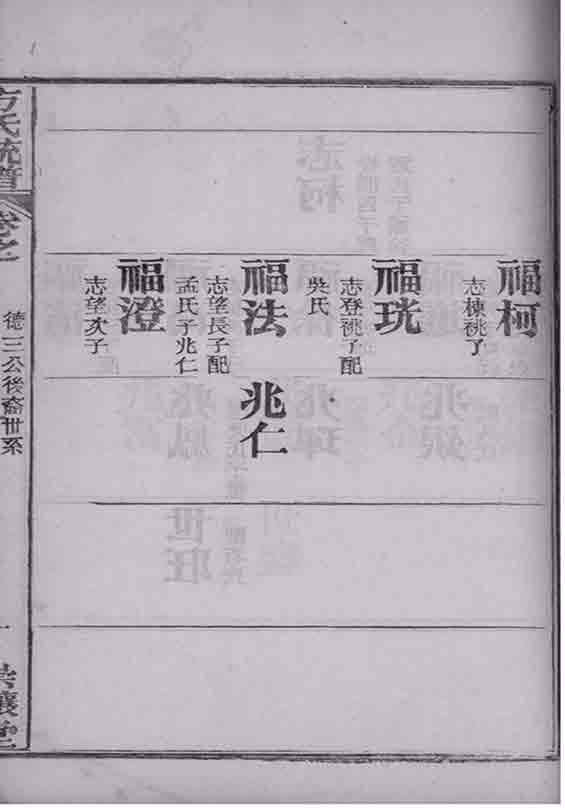 福柯
志棟祧子
福珖
志登祧子配
吳氏
福法
志望長子配
孟氏子兆仁
福澄
志望次子
兆仁
方氏統譜
卷之
德三公後裔世系